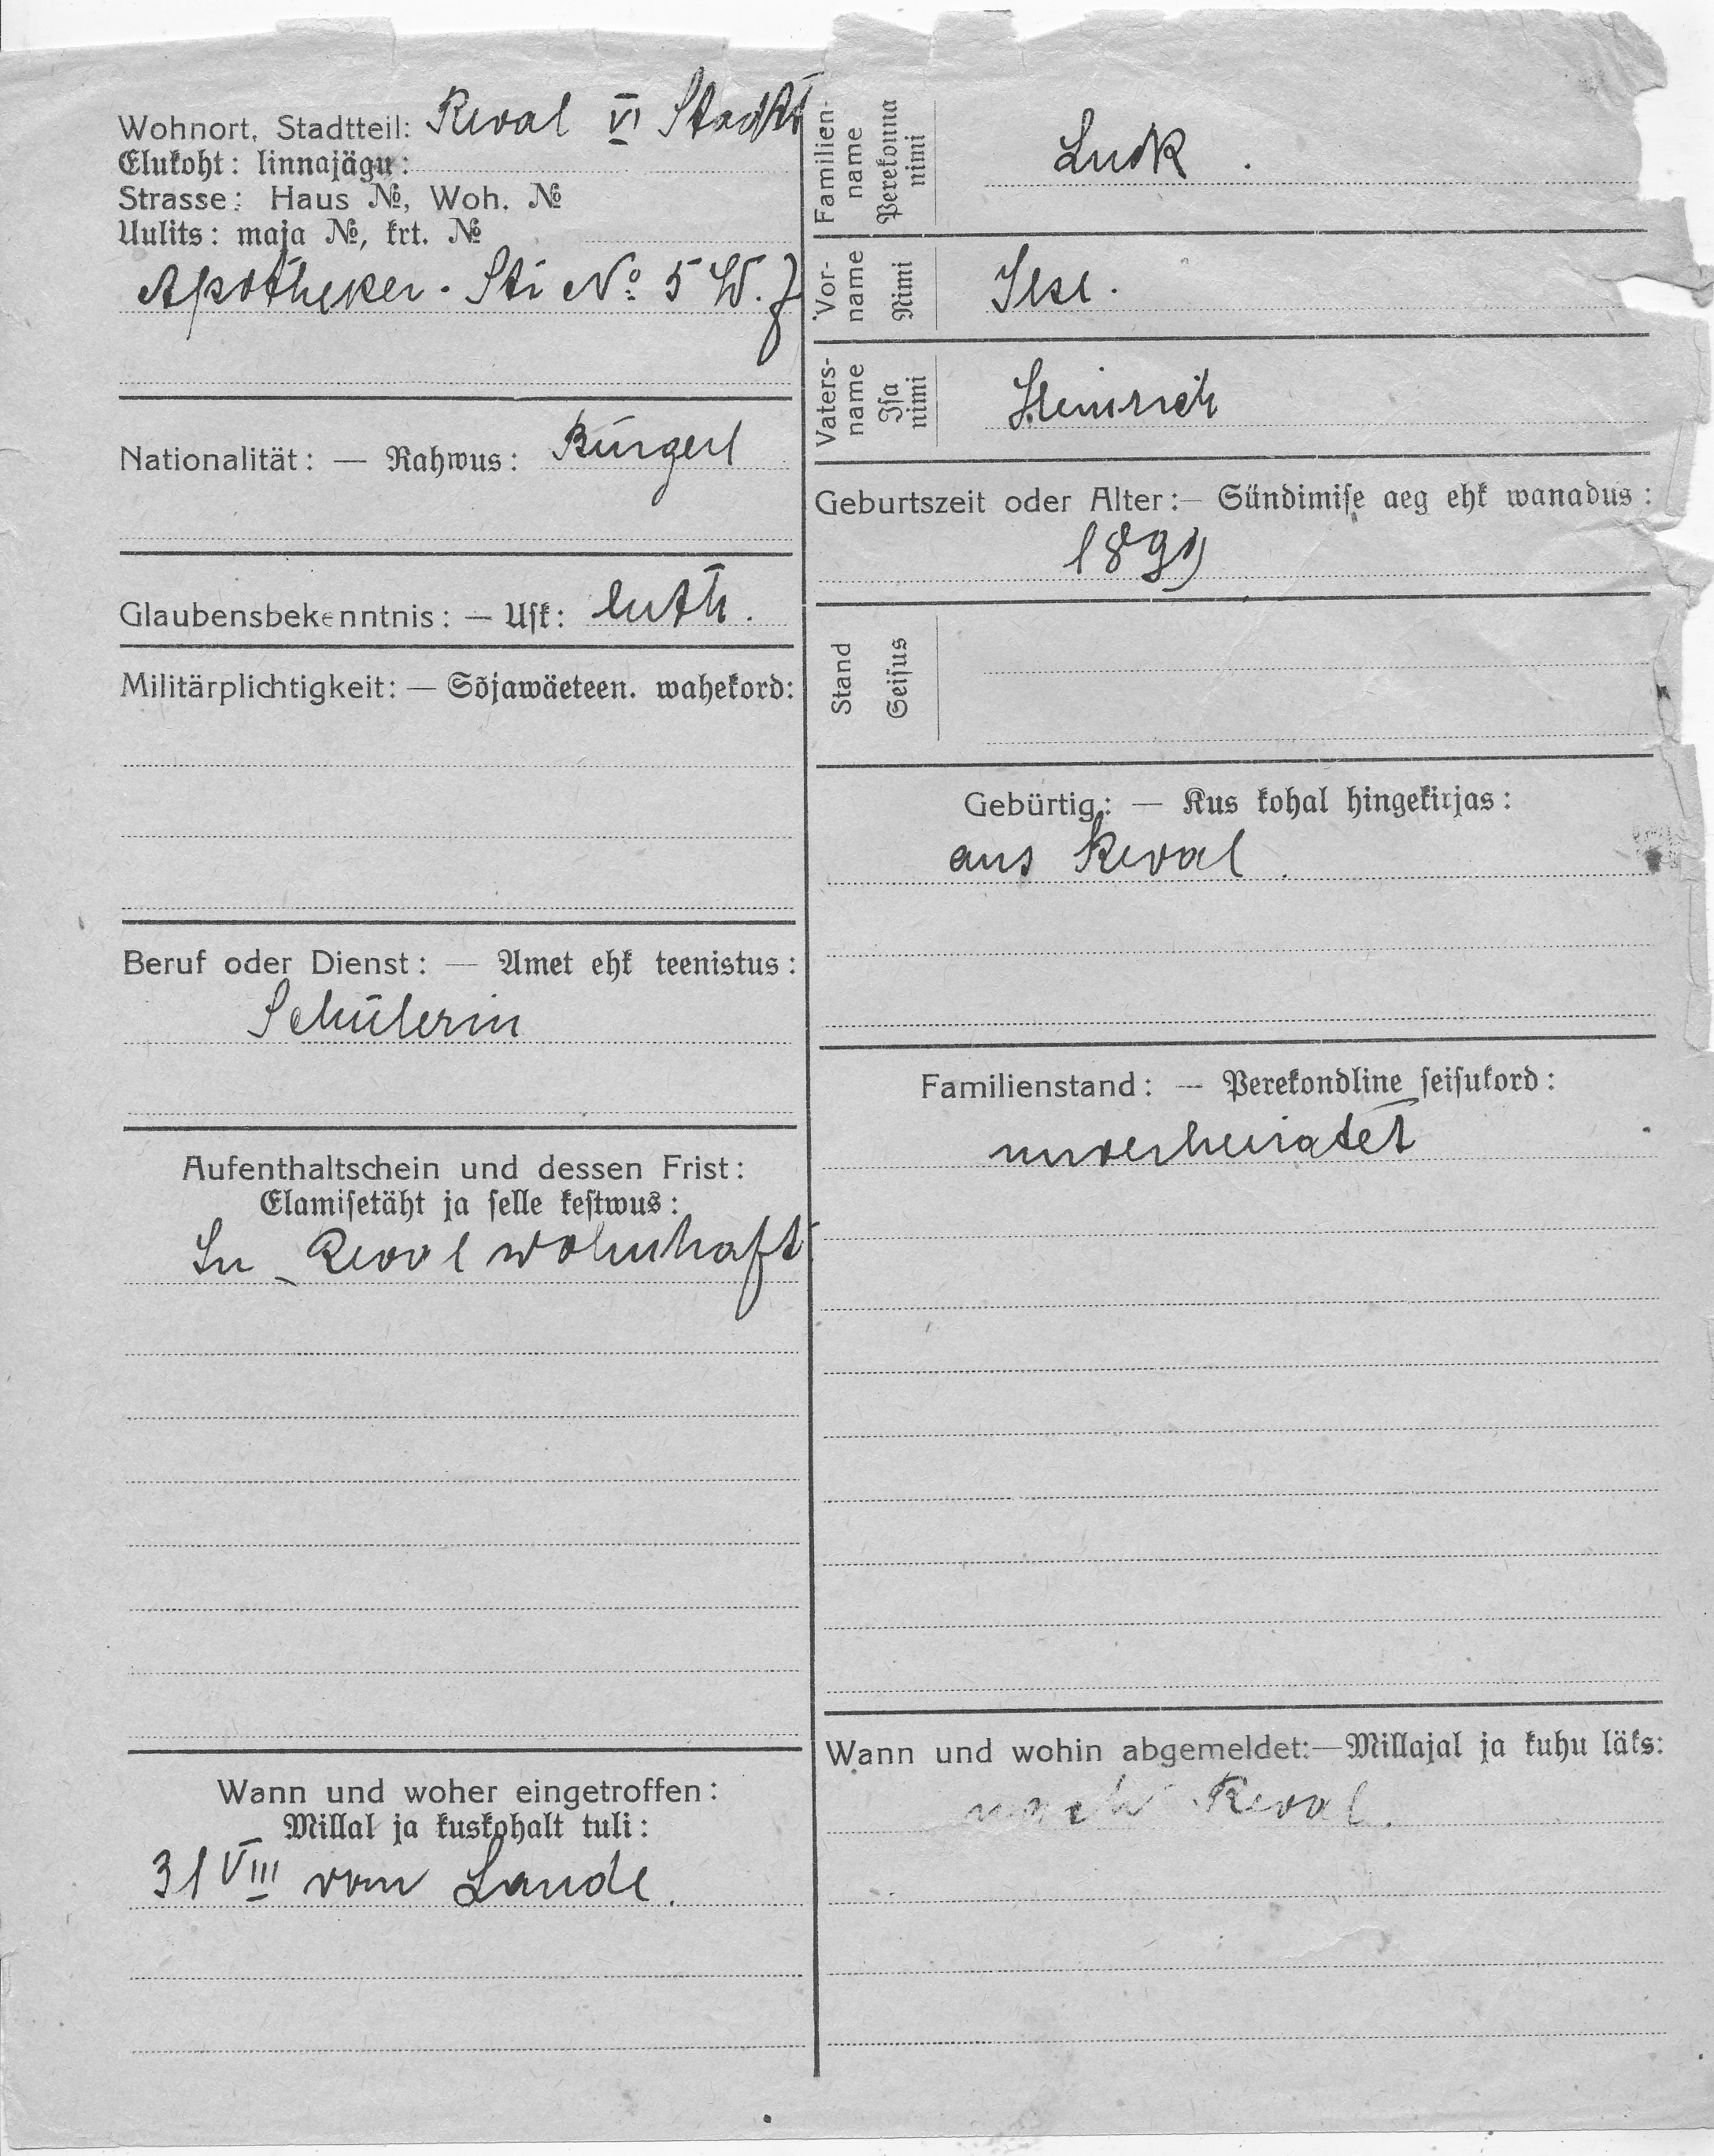 Wohnort, Stadtteil: Reval VI Stadtt
Elukoht: linnajägu:
Strasse: Haus №, Woh. №
Uulits: maja №, krt. №
Apotheker. Str No 5 W. 7
Nationalität: — Rahwus: Bürgerl
Glaubensbekenntnis: — Usk: luth.
Militärplichtigkeit: — Sõjawäeteen. wahekord:
Beruf oder Dienst: — Amet ehk teenistus:
Schülerin
Aufenthaltschein und dessen Frist:
Elamisetäht ja selle kestwus:
In Reval wohnhaft
Wann und woher eingetroffen:
Millal ja kuskohalt tuli:
31 VIII vom Lande.
Familien-
name
Perekonna
nimi
Luck.
Vor-
name
Nimi
Ilse.
Vaters-
name
Isa
nimi
Heinrich
Geburtszeit oder Alter:— Sündimise aeg ehk wanadus:
1899
Stand
Seisus
Gebürtig: — Kus kohal hingekirjas:
aus Reval.
Familienstand: — Perekondline seisukord:
unverheiratet
Wann und wohin abgemeldet:—Millajal ja kuhu läks:
nach Reval.